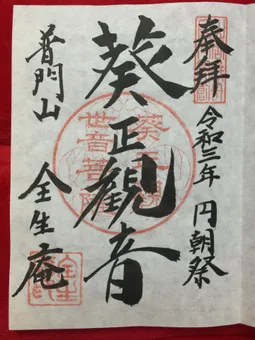 奉拝
令和三年 円朝祭
葵正観音
普門山
全生庵